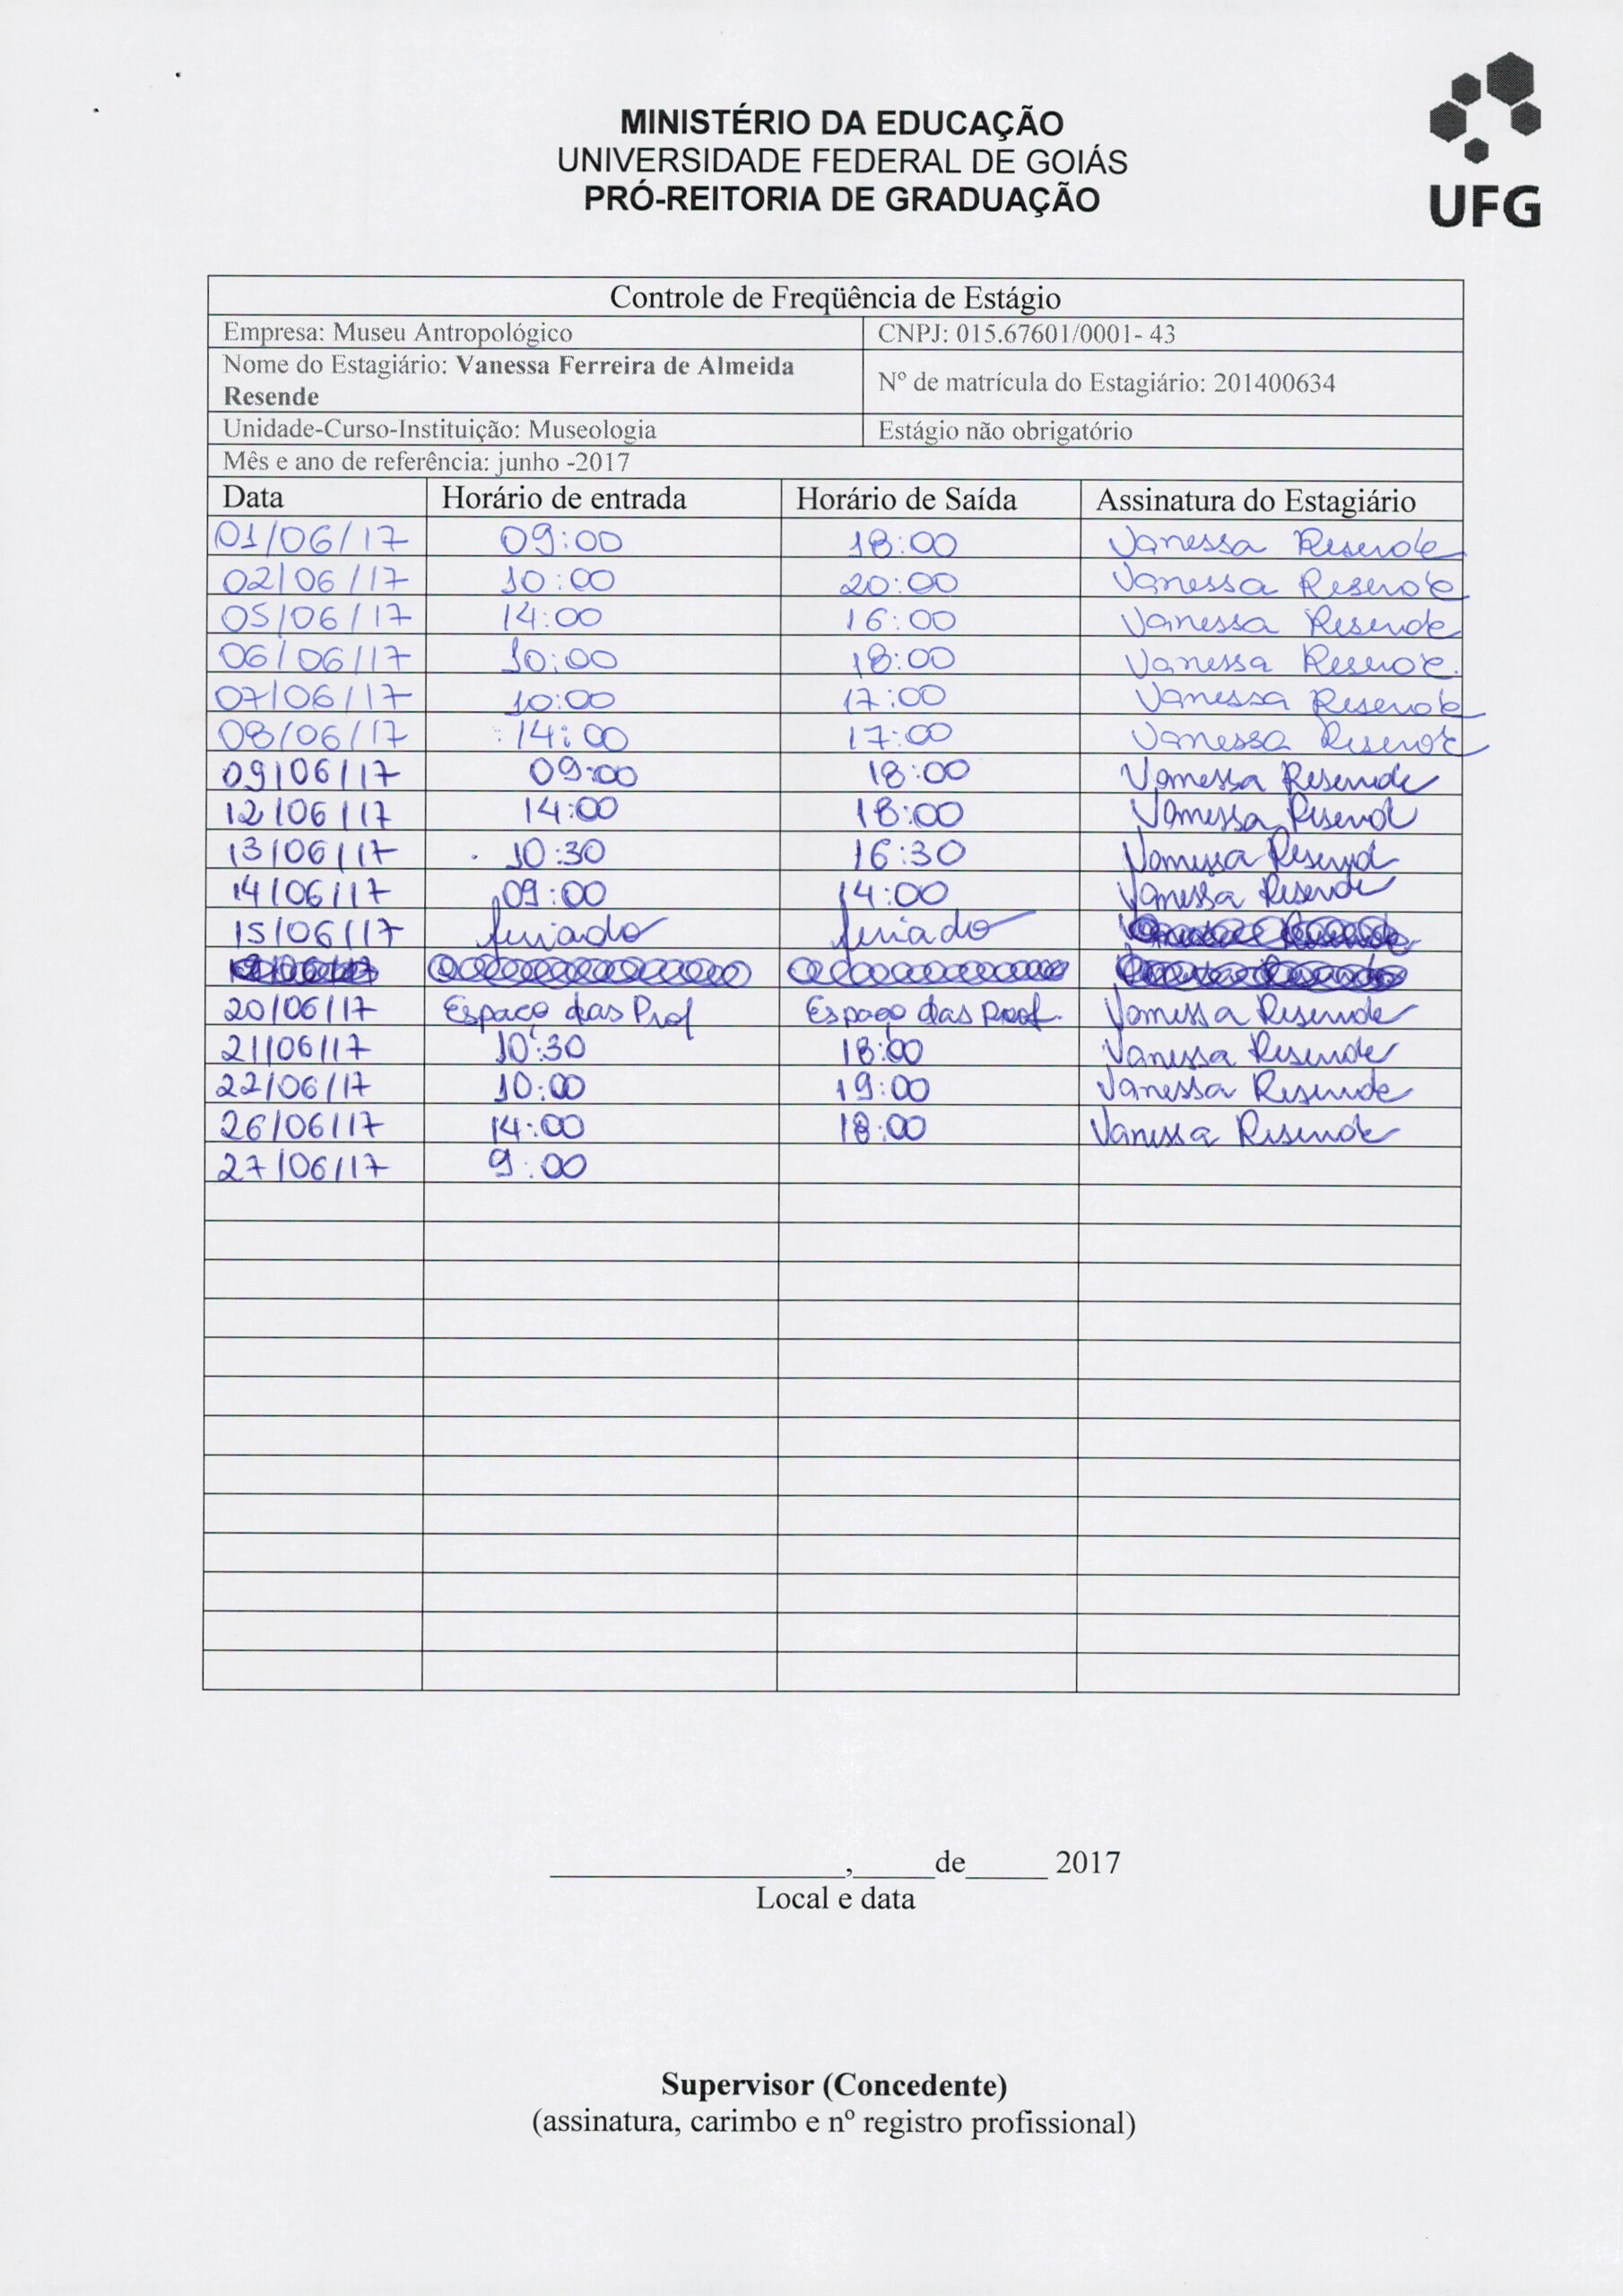 MINISTÉRIO DA EDUCAÇÃO
UNIVERSIDADE FEDERAL DE GOIÁS
PRÓ-REITORIA DE GRADUAÇÃO
UFG
Controle de Freqüência de Estágio
Empresa: Museu Antropológico CNPJ: 015.67601/0001- 43
Nome do Estagiário: Vanessa Ferreira de Almeida
Resende
Nº de matrícula do Estagiário: 201400634
Unidade-Curso-Instituição: Museologia Estágio não obrigatório
Mês e ano de referência: junho -2017
Data Horário de entrada Horário de Saída Assinatura do Estagiário
01/06/17 09:00 18:00 Vanessa Resende
02/06/17 10:00 20:00 Vanessa Resende
05/06/17 14:00 16:00 Vanessa Resende
06/06/17 10:00 18:00 Vanessa Resende.
07/06/17 10:00 17:00 Vanessa Resende
08/06/17 14:00 17:00 Vanessa Resende
09/06/17 09:00 18:00 Vanessa Resende
12/06/17 14:00 18:00 Vanessa Resend
13/06/17 10:30 16:30 Vanessa Resend
14/06/17 09:00 14:00 Vanessa Resende
15/06/17 feriado feriado
20/06/17 Espaço das Prof Espaço das Prof. Vanessa Resende
21/06/17 10:30 18:00 Vanessa Resende
22/06/17 10:00 19:00 Vanessa Resende
26/06/17 14:00 18:00 Vanessa Resende
27/06/17 9:00
__________________,_____de_____ 2017
Local e data
Supervisor (Concedente)
(assinatura, carimbo e nº registro profissional)